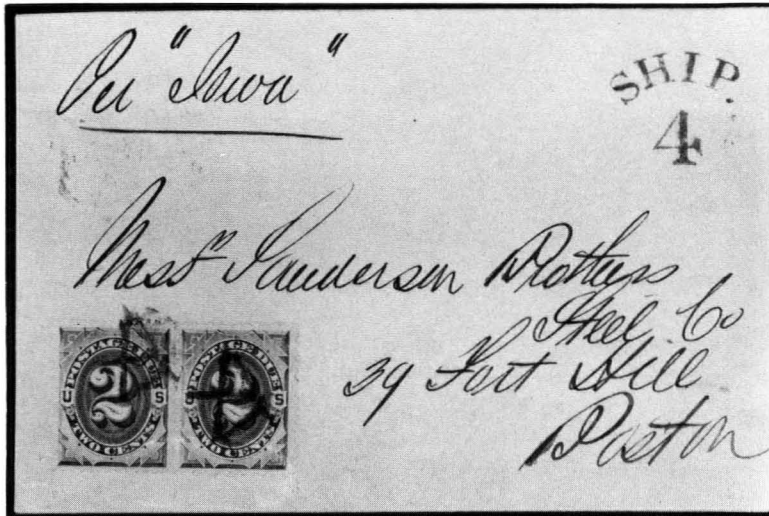 Per "Iowa"
SHIP.
4
Messrs Sanderson Brothers
Steel Co
39 Fort Hill
Boston
POSTAGE DUE
2
U S
TWO CENTS
POSTAGE DUE
2
U S
TWO CENTS